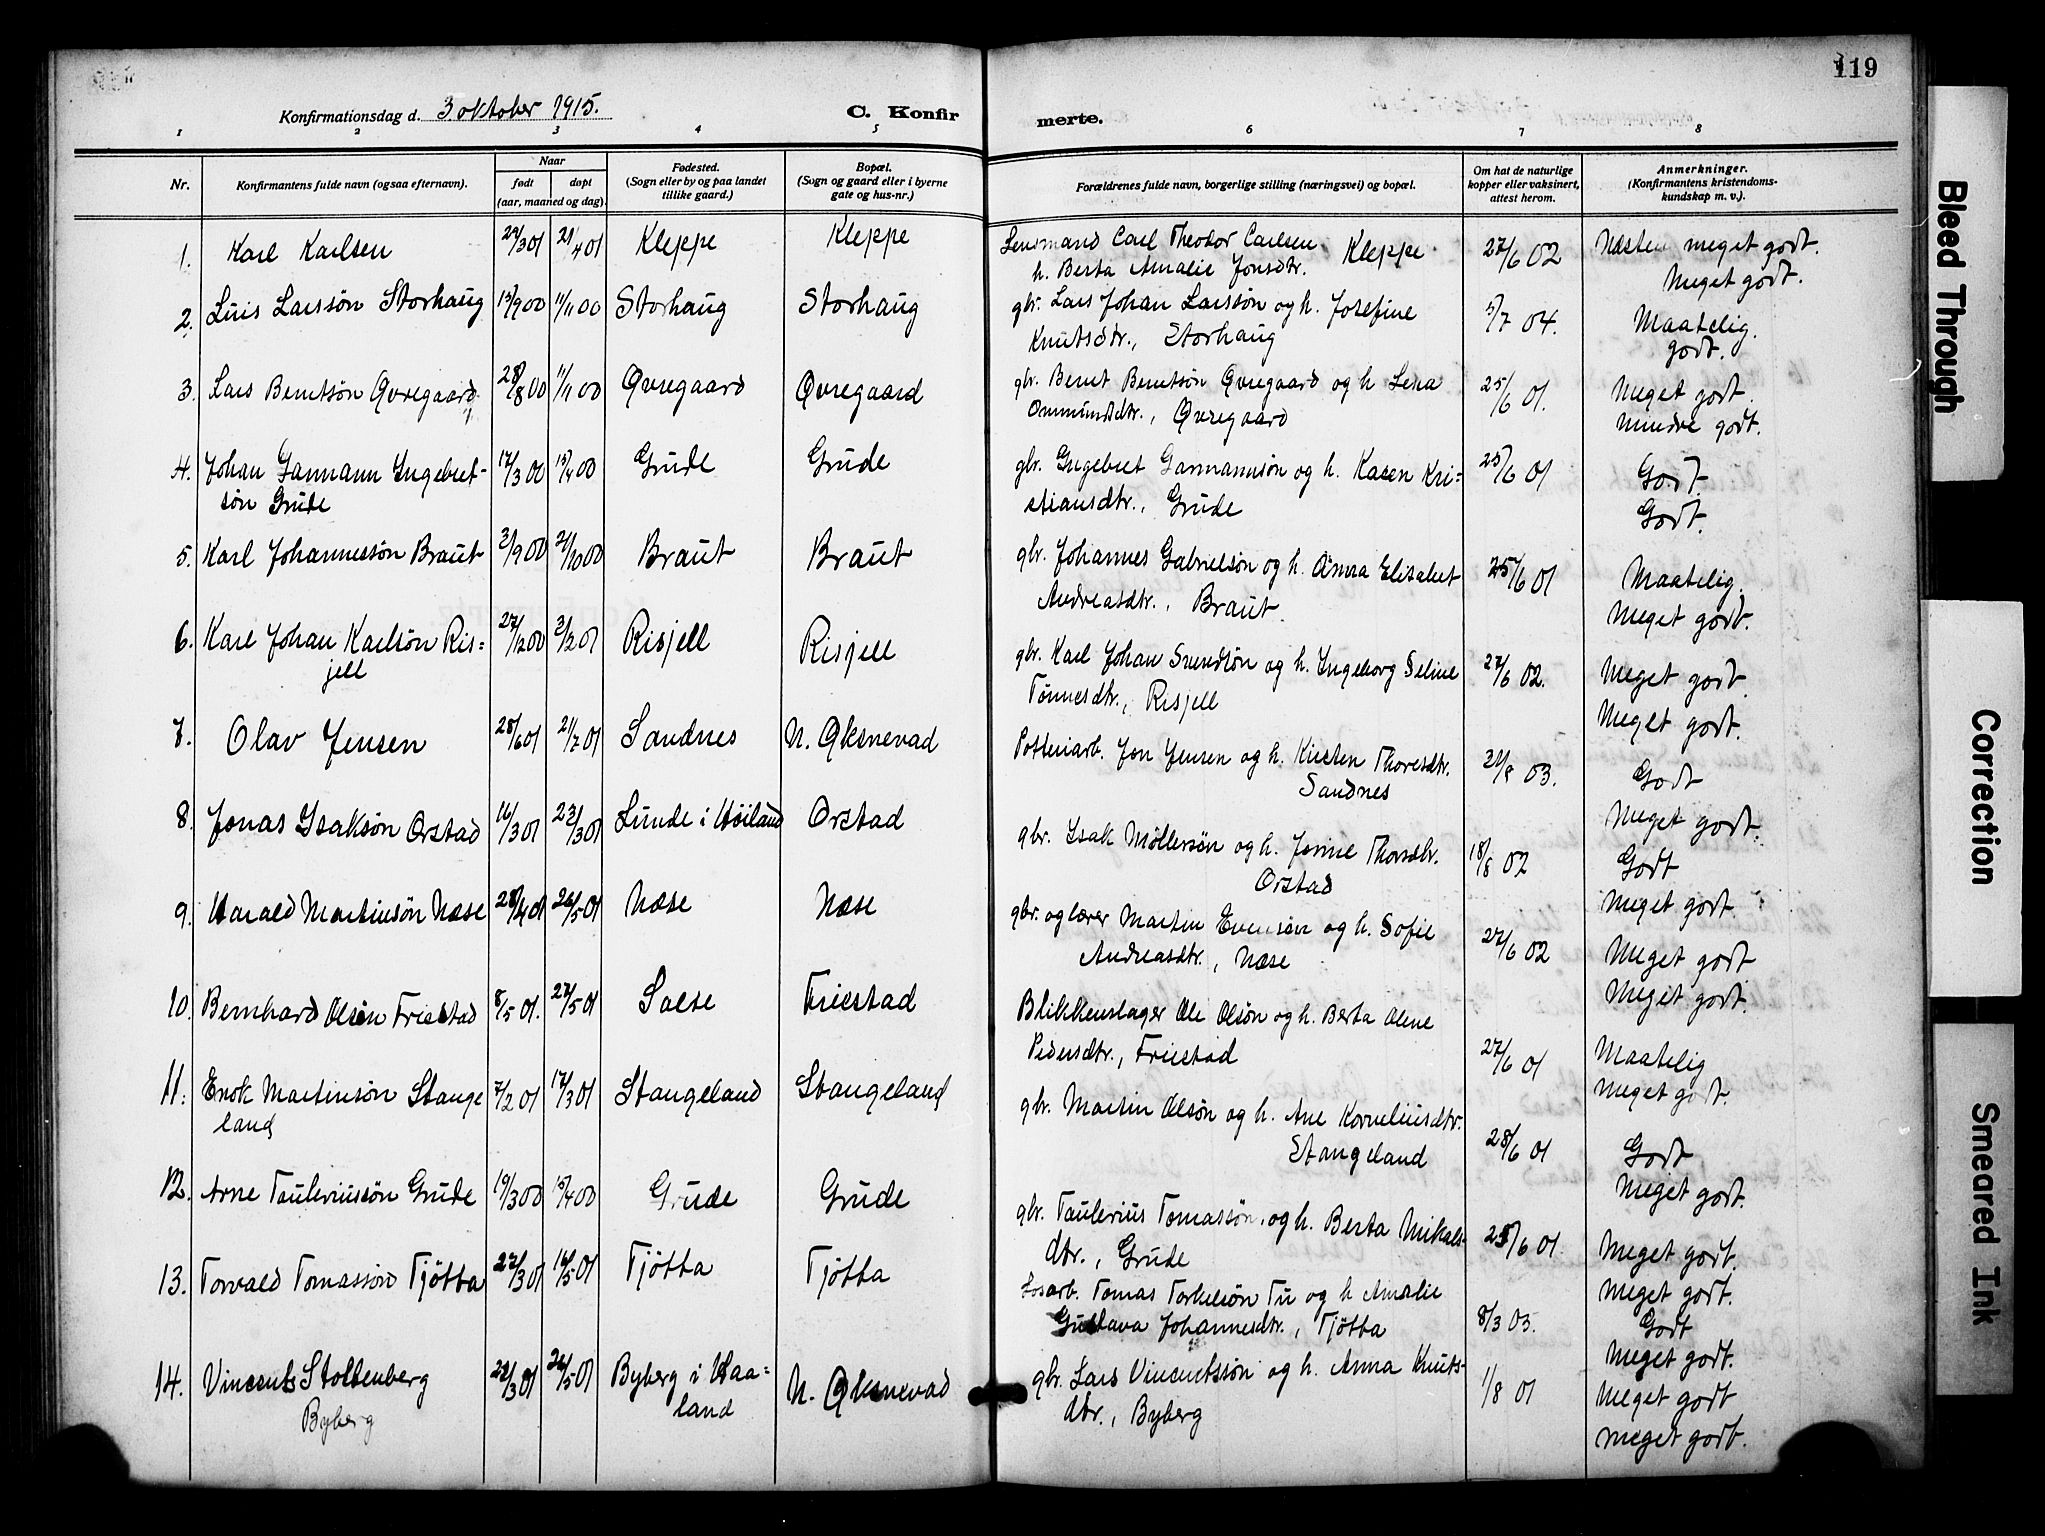 119
Konfirmationsdag d. 3 oktober 1915.
C. Konfirmerte.
1 2 3 4 5 6 7 8
Nr.
Konfirmantens fulde navn (ogsaa efternavn).
Naar
født
døpt
(aar, maaned og dag).
Fødested.
(Sogn eller by og paa landet
tillike gaard.)
Bopæl.
(Sogn og gaard eller i byerne
gate og hus-nr.)
Forældrenes fulde navn, borgerlige stilling (næringsvei) og bopæl.
Om hat de naturlige
kopper eller vaksinert,
attest herom.
Anmerkninger.
(Konfirmantens kristendoms-
kundskap m. v.).
1. Karl Karlsen 29/3 01 21/4 01 Kleppe Kleppe Lensmand Carl Theodor Carlsen Kleppe 27/6 02 Næsten meget godt.
h. Berta Amalie Jonsdtr. Meget godt.
2. Luis Larssøn Storhaug 15/9 00 11/11 00 Storhaug Storhaug gbr. Lars Johan Larssøn og h. Josefine 5/7 04. Maatelig.
Knutsdtr., Storhaug godt.
3. Lars Berntsøn Øvregaard 28/8 00 11/11 00 Øvregaard Øvregaard gbr. Bernt Berntsøn Øvregaard og h. Lena 25/6 01. Meget godt.
Ommundsdtr., Øvregaard mindre godt.
4. Johan Garmann Ingebret- 17/3 00 15/4 00 Grude Grude gbr. Ingebret Garmannsøn og h. Karen Kri- 25/6 01 Godt
søn Grude stiansdtr., Grude Godt.
5. Karl Johannessøn Braut 2/9 00 21/10 00 Braut Braut gbr. Johannes Gabrielsøn og h. Anna Elisabet 25/6 01 Maatelig.
Andreasdtr., Braut. Meget godt.
6. Karl Johan Karlsøn Ris- 27/12 00 3/2 01 Risjell Risjell gbr. Karl Johan Svendsøn og h. Ingeborg Seline 27/6 02. Meget godt.
jell Tønnesdtr., Risjell Meget godt.
7. Olav Jensen 28/6 01 21/7 01 Sandnes N. Øksnevad Potteriarb. Jon Jensen og h. Kirsten Thoresdtr. 31/8 03. Godt
Sandnes Meget godt.
8. Jonas Isaksøn Orstad 16/3 01 23/3 01 Lunde i Høiland Orstad gbr. Isak Møllersøn og h. Jorine Thorsdtr. 18/8 02 Godt
Orstad Meget godt.
9. Harald Martinsøn Næse 28/4 01 26/5 01 Næse Næse gbr. og lærer Martin Evensøn og h. Sofie 27/6 02 Meget godt
Andreasdtr., Næse Meget godt.
10. Bernhard Olsøn Friestad 8/5 01. 27/5 01 Saese Friestad Blikkenslager Ole Olsøn og h. Berta Olene 27/6 01 Maatelig
Pedersdtr., Friestad Meget godt.
11. Enok Martinsøn Stange 7/2 01 17/3 01 Stangeland Stangeland gbr. Martin Olsøn og h. Ane Korneliusdtr. 28/6 01 Godt
land Stangeland Meget godt.
12. Arne Tauleriussøn Grude 19/3 00 15/4 00 Grude Grude gbr. Taulerius Tomassøn og h. Berta Mikals- 25/6 01. Meget godt.
dtr., Grude Meget godt.
13. Torvald Tomassøn Tjøtta 27/3 01 16/5 01 Tjøtta Tjøtta Losarb. Tomas Torkelsøn Tu og h Amalie 8/3 03. Godt
Gustava Johannesdtr., Tjøtta Meget godt.
14. Vincents Stoltenberg 22/3 01 26/5 01 Byberg i Haa- N. Øksnevad gbr. Lars Vincentssøn og h. Anna Knuts- 1/8 01 Meget godt
Byberg land dtr., Byberg meget godt.
Bleed Through
Correction
Smeared Ink